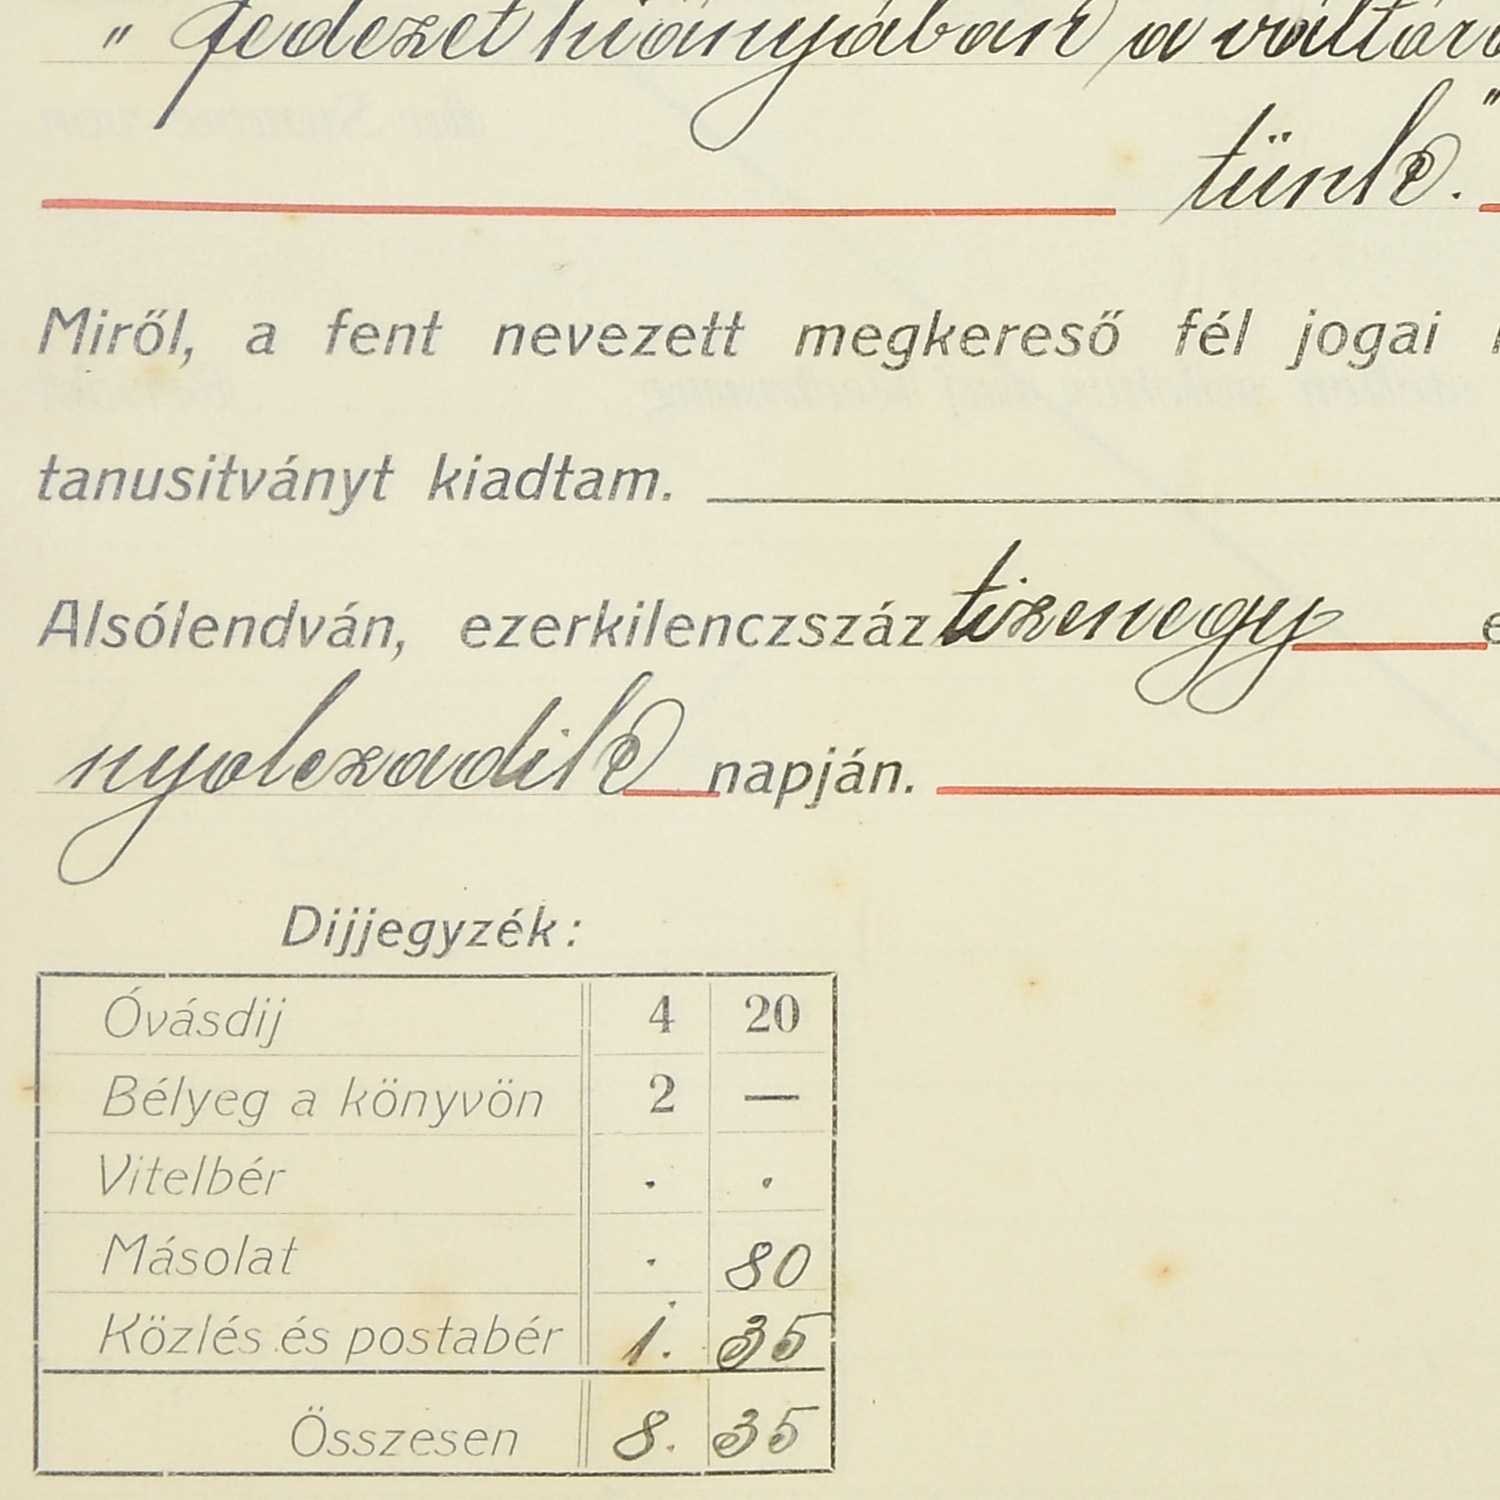 " fedezet hiányában a váltóra
tünk."
Miről, a fent nevezett megkereső fél jogai
tanusitványt kiadtam.
Alsólendván, ezerkilenczszáz tizenegy e
nyolczadik napján.
Dijjegyzék:
Óvásdij 4 20
Bélyeg a könyvön 2 —
Vitelbér . .
Másolat . 80
Közlés és postabér 1. 35
Összesen 8. 35